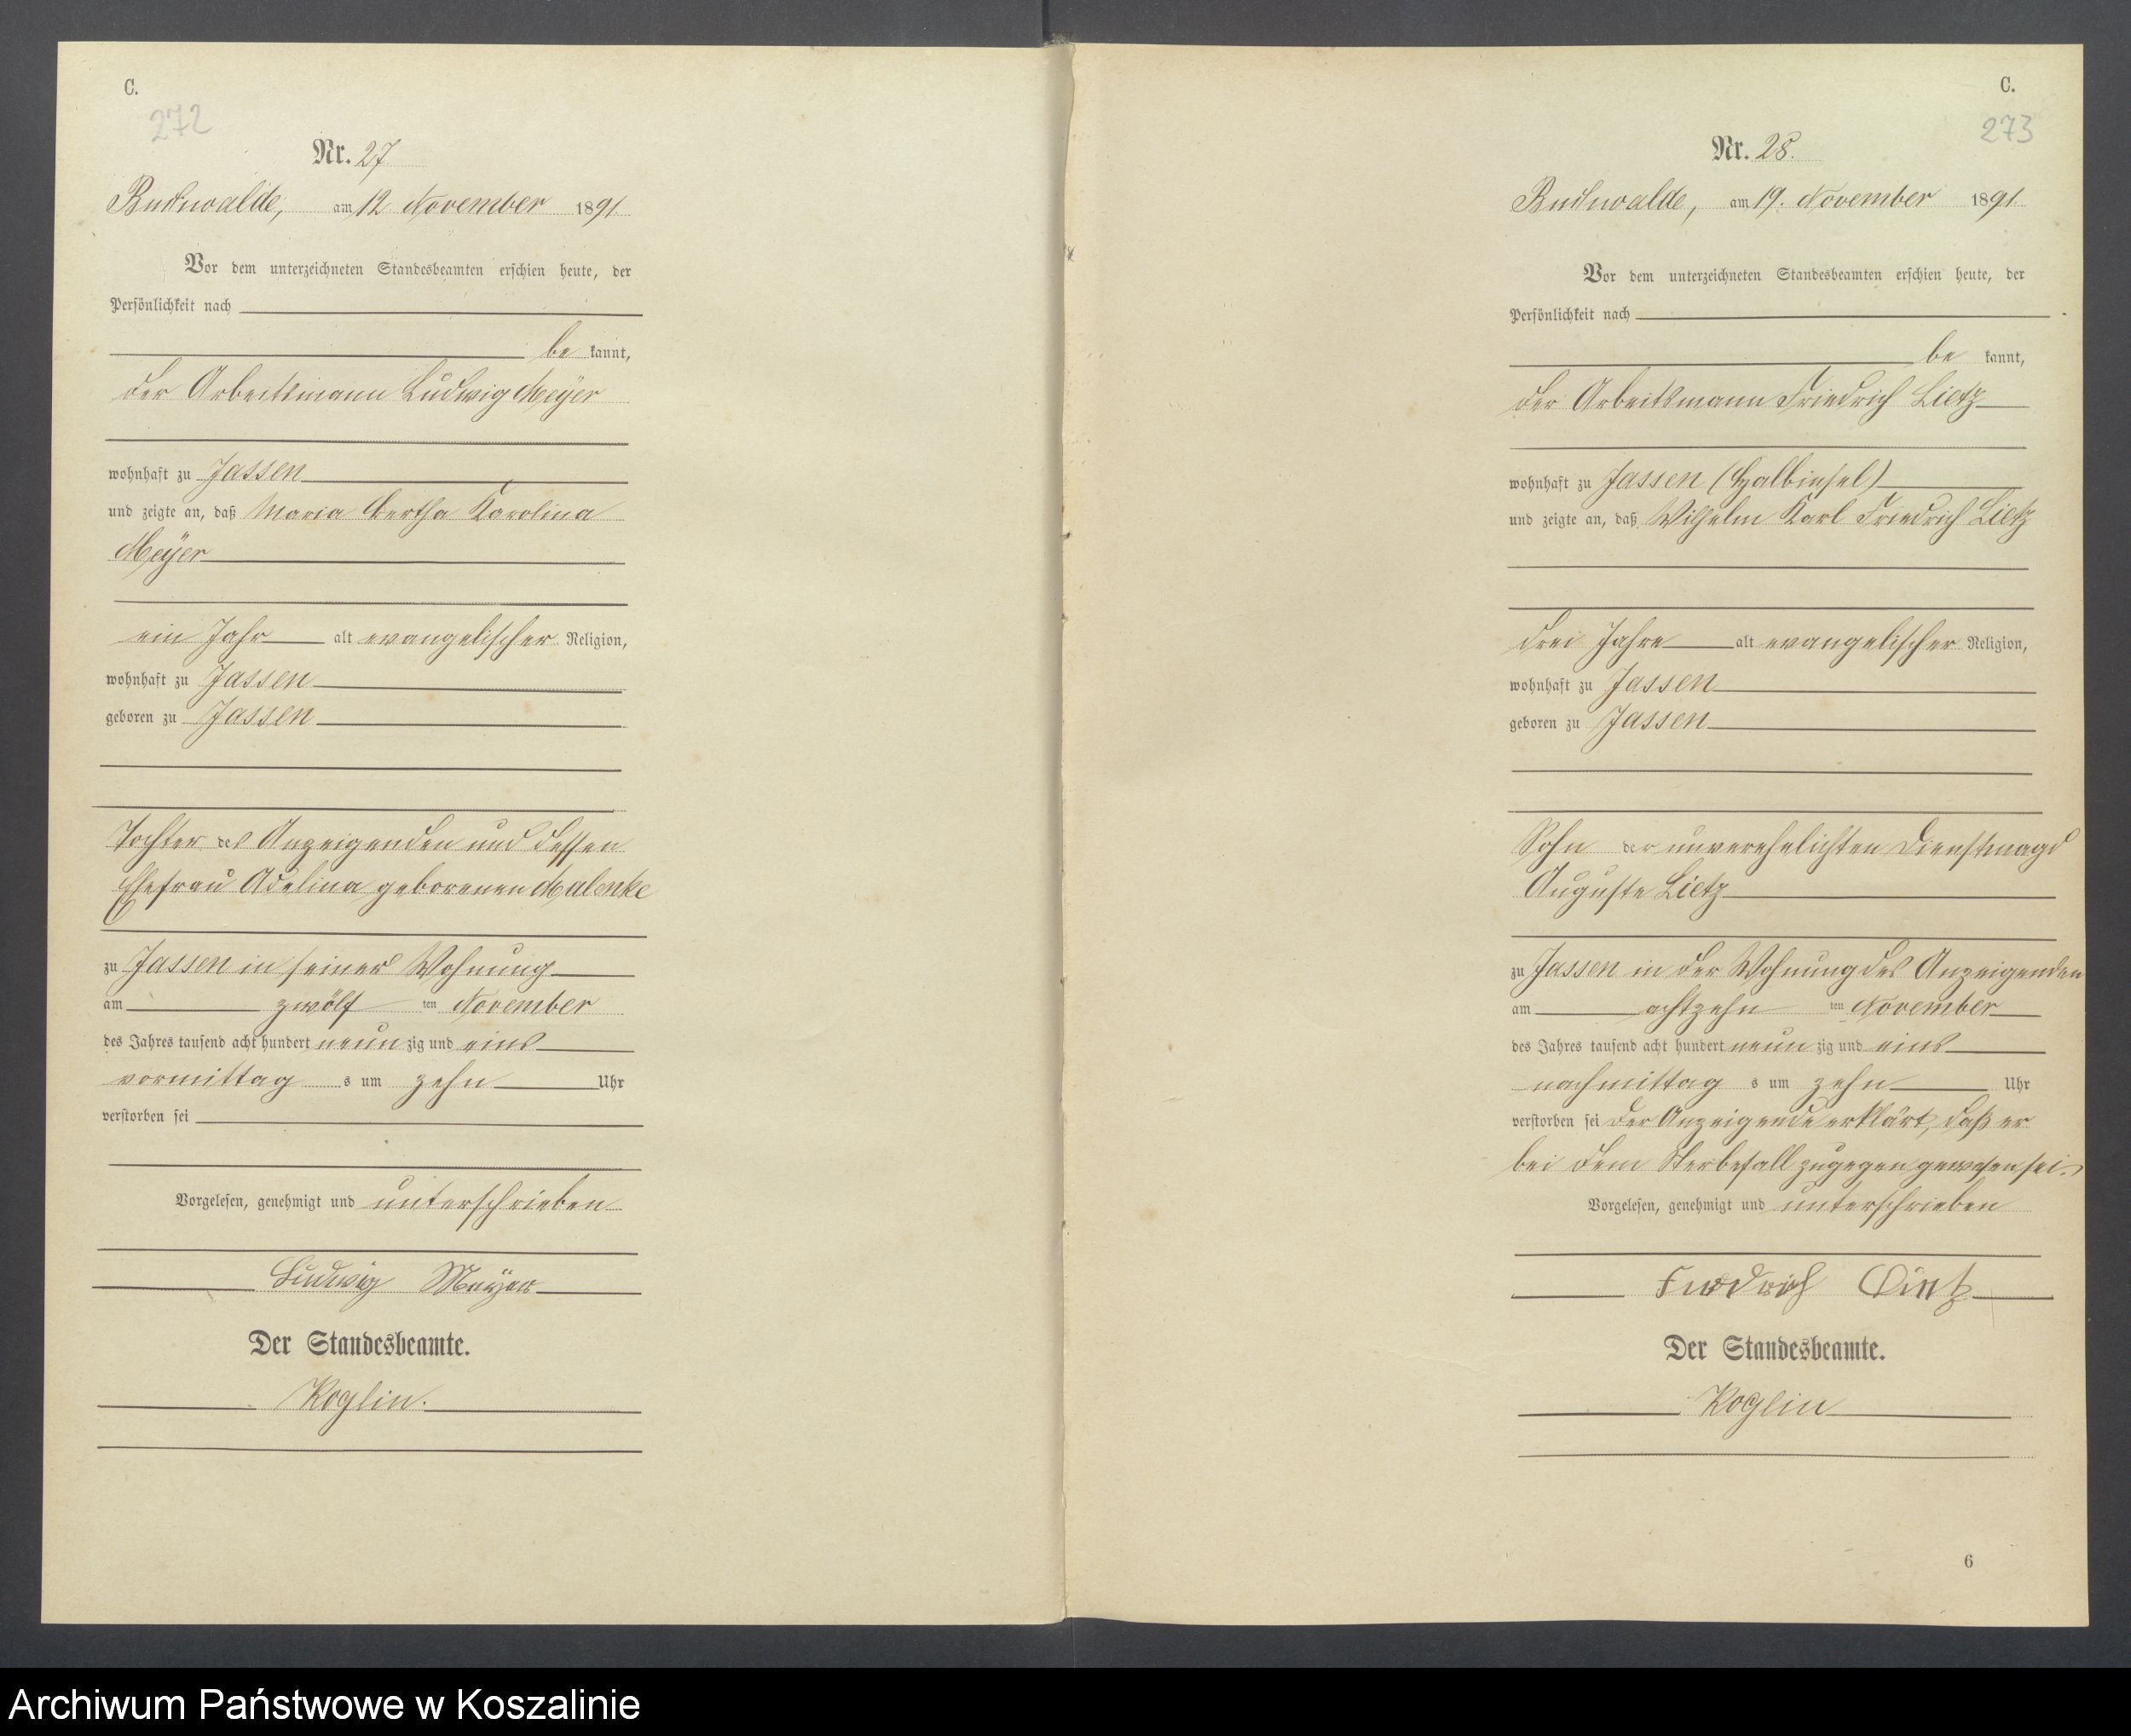 C.
272
Nr. 27
Buckowalde, am 12 November 1891
Vor dem unterzeichneten Standesbeamten erschien heute, der
Persönlichkeit nach
be kannt,
der Arbeitsmann Ludwig Meÿer
wohnhaft zu Jassen
und zeigte an, daß Maria Bertha Karolina
Meÿer
ein Jahr alt evangelischer Religion,
wohnhaft zu Jassen
geboren zu Jassen
Tochter des Anzeigenden und dessen
Ehefrau Adelina geborenen Malenke
zu Jassen in seiner Wohnung
am zwölf ten November
des Jahres tausend acht hundert neun zig und eins
vormittag s um zehn Uhr
verstorben sei
Vorgelesen, genehmigt und unterschrieben
Ludwig Meÿer
Der Standesbeamte.
Koglin.
C.
273
Nr. 28.
Buckowalde, am 19. November 1891
Vor dem unterzeichneten Standesbeamten erschien heute, der
Persönlichkeit nach
be kannt,
der Arbeitsmann Friedrich Lietz
wohnhaft zu Jassen (Halbinsel)
und zeigte an, daß Wilhelm Karl Friedrich Lietz
drei Jahre alt evangelischer Religion,
wohnhaft zu Jassen
geboren zu Jassen
Sohn der unverehelichten Dienstmagd
Auguste Lietz
zu Jassen in der Wohnung des Anzeigenden
am achtzehn ten November
des Jahres tausend acht hundert neun zig und eins
nachmittag s um zehn Uhr
verstorben sei der Anzeigende erklärt, daß er
bei dem Sterbefall zugegen gewesen sei.
Vorgelesen, genehmigt und unterschrieben
Friedrich Lietz
Der Standesbeamte.
Koglin
6
Archiwum Państwowe w Koszalinie